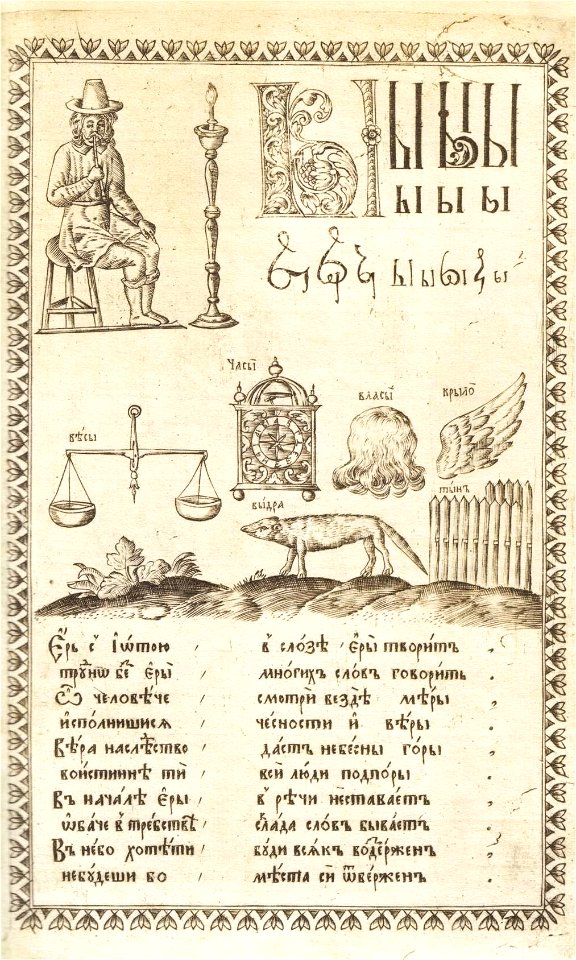 Ы Ы Ы Ы
Ы Ы Ы
ы ы ы
часы̀
власы̀
крыло̀
вѣ́сы
вы́дра
ты́нъ
Е҆́рь с̾ і҆ѡ́тою , в̾ сло́зѣ є҆ры̀ твори́тъ ,
є҆ры̀ , мно́гихъ сло́въ говори́тъ ,
Ѽ человѣ́че , смотрѝ вездѣ̀ мѣ́ры ,
и҆спо́лнишися , че́сности и҆ вѣ́ры .
Вѣ́ра наслѣ́дство , да́стъ небе́сны го́ры .
вои́стиннѣ ти̑ , всѝ лю́ди подпо́ры .
Въ нача́лѣ є҆ры̀ , в̾ рѣ́чи не става́етъ ,
ѻ҆ба́че в̾ тре́бствѣ , скла́да сло́въ быва́етъ .
Въ не́бо хотѣ́ти , бу́ди вся́къ воде́рженъ ,
небу́деши бо мѣ́ста сѝ ѿве́рженъ .